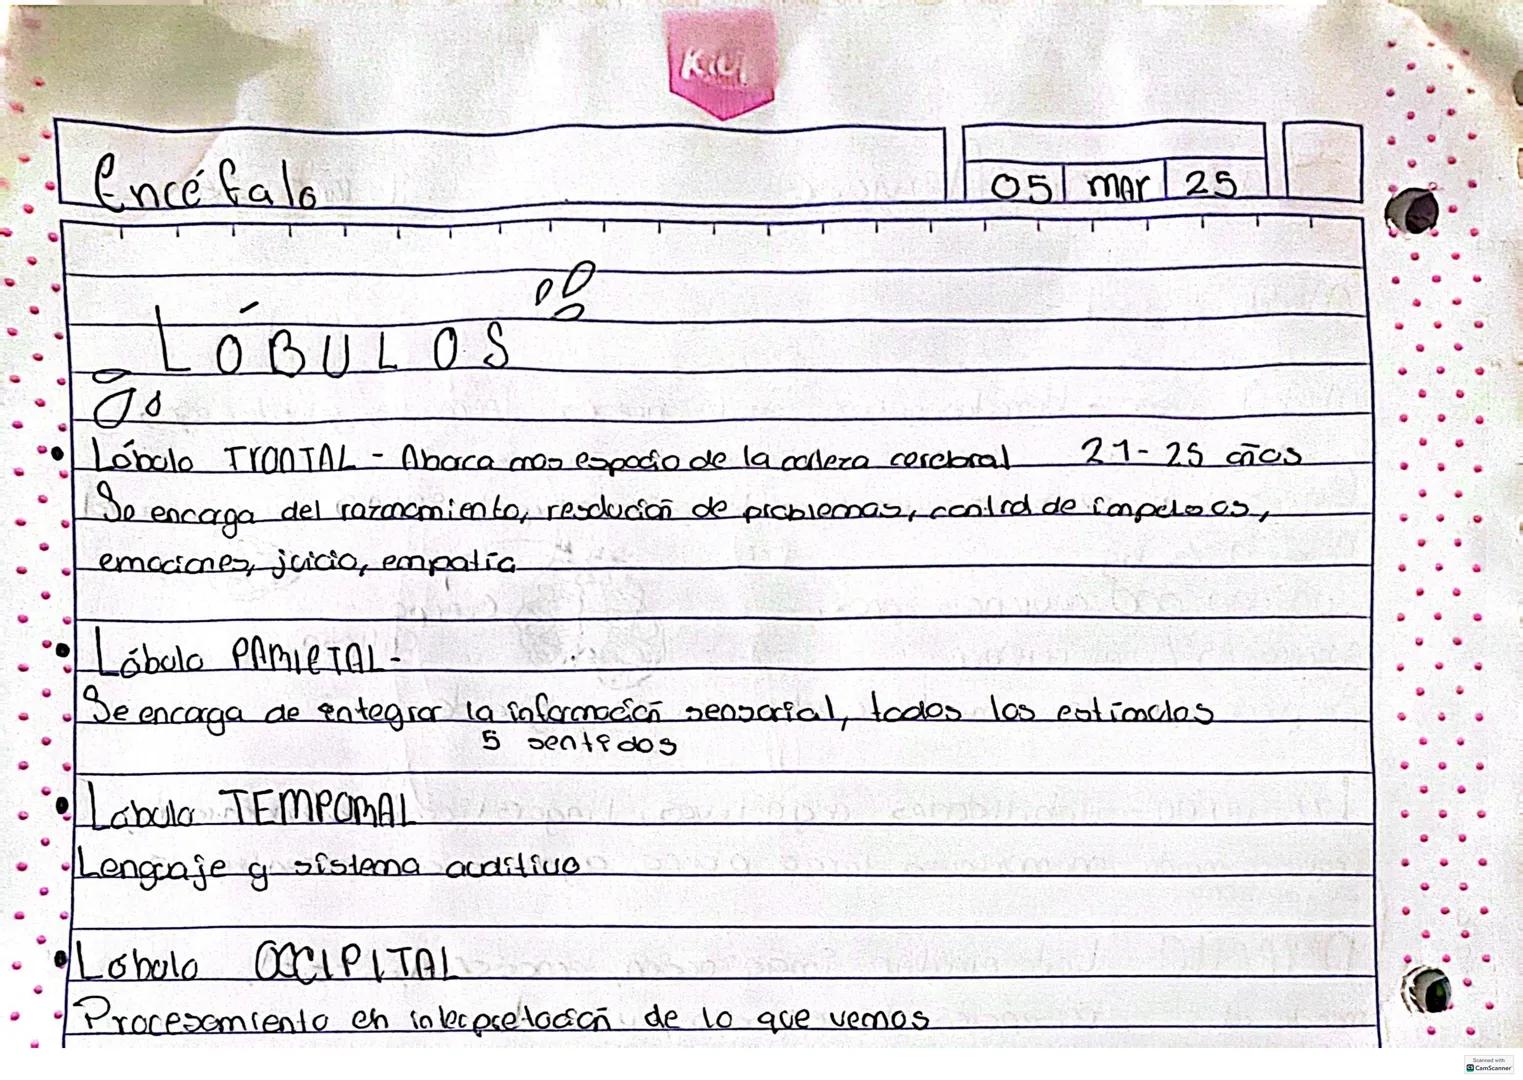 Kiut
Encéfalo
05 MAR 25
LÓBULOS
Lóbulo FRONTAL - Abarca mas espacio de la corteza cerebral 21-25 años
Se encarga del razonamiento, resolución de problemas, control de impulsos,
emociones, juicio, empatía
Lóbulo PARIETAL-
Se encarga de integrar la información sensorial, todos los estímulos
5 sentidos
Lóbulo TEMPORAL
Lenguaje y sistema auditivo
Lóbulo OCCIPITAL
Procesamiento en interpretación de lo que vemos
Scanned with
CamScanner